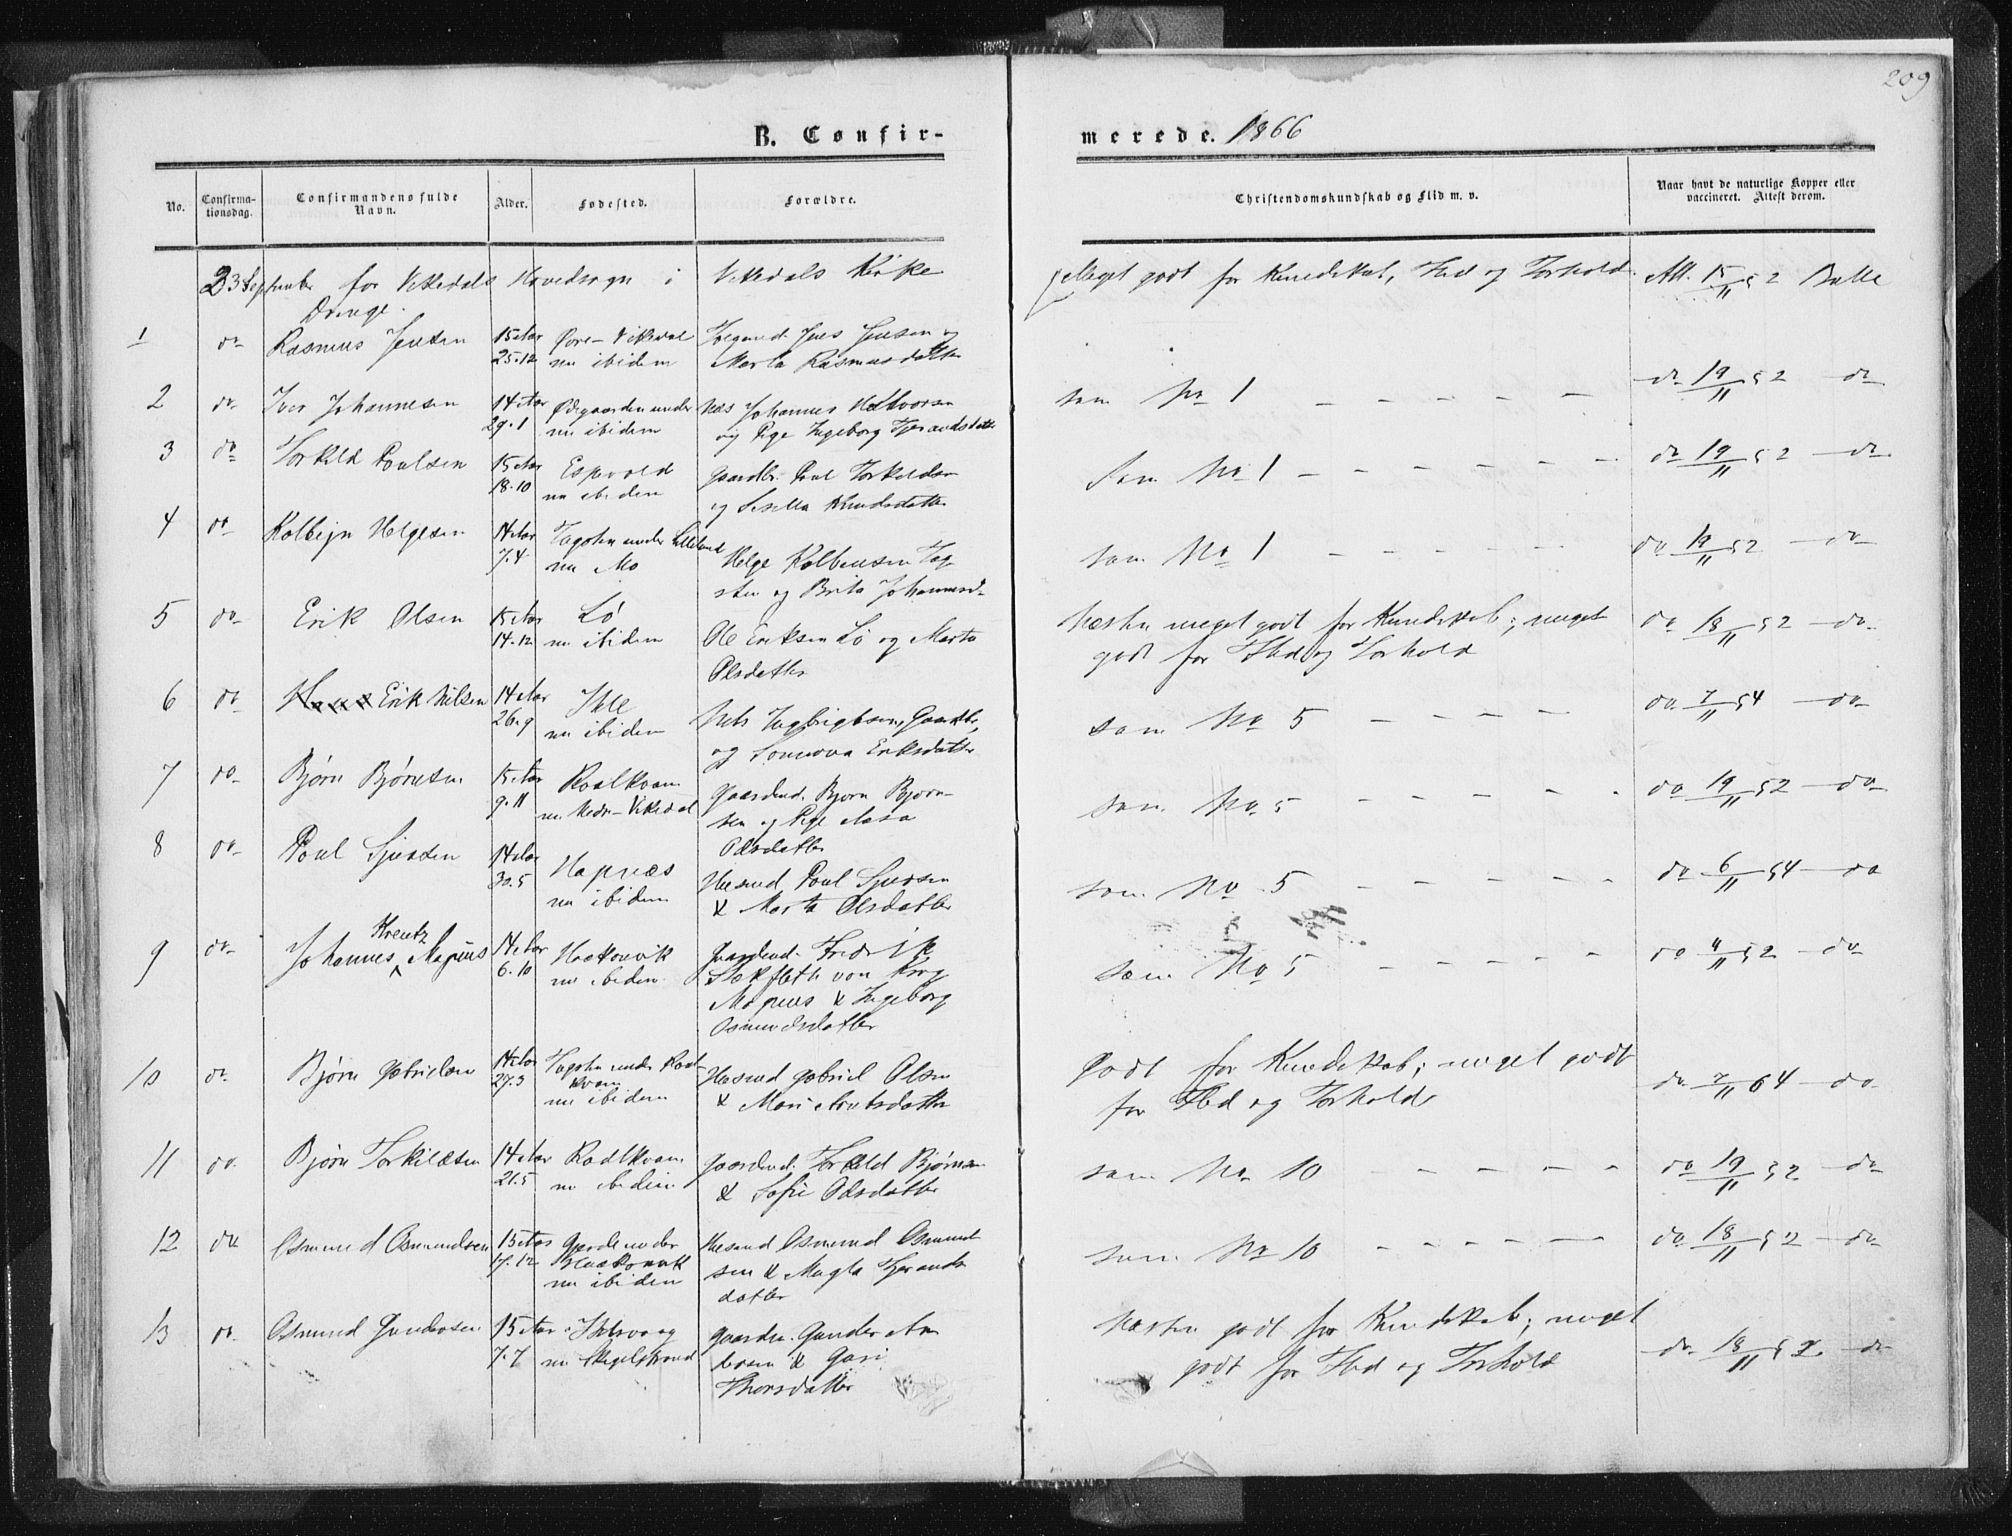 209
B. Confir-
merede. 1866
No.
Confirma-
tionsdag.
Confirmandens fulde
Navn.
Alder.
Fødested.
Forældre.
Christendomskundskab og Flid m. v.
Naar havt de naturlige Kopper eller
vaccineret. Attest derom.
23 September for Vikedals Hovedsogn i Vikedals Kirke
Drenge.
1 do Rasmus Jensen 15 Aar Øvre-Vikedal
25.12 nu ibidem
Jens Jensen og
Marta Rasmusdatter
Meget godt for Kundskab, Flid og Forhold. Att. 15/11 52 Balle
2 do Iver Johannesen 14 Aar Ødegaarden under
29.1 nu ibidem
Næs Johannes Halvorsen
og Pige Ingeborg
som No 1 — — — — — do 19/11 52 — do
3 do Torkild Poulsen 15 Aar Espevold
18.10 nu ibidem
Gaardbr. Poul Torkeldsen
og Sisilla Knudsdatter
som No 1 — — — — — do 19/11 52 — do
4 do Kolbejn Helgesen 14 Aar under Lilleland
7.4 nu Mo
Helge Kolbensen
og Brita Johannesd.
som No 1 — — — — do 19/11 52 — do
5 do Erik Olsen 15 Aar Lø
14.12 nu ibidem
Ole Eriksen Lø og Marta
Olsdatter
Næsten meget godt for Kundskab; meget
godt for Flid og Forhold
do 18/11 52 — do
6 do Erik Nilsen 14 Aar
26.9 nu ibidem
Nils Gaardbr.
og Eriksdatter
som No 5 — — — — do 7/11 54 — do
7 do Bjørn Bjørnsen 15 Aar Roalkvam
9.11 nu Nedre-Vikedal
Gaardmd. Bjørn Bjørn-
sen og Pige Aasa
Olsdatter
som No 5 — — — — — do 19/11 52 — do
8 do Poul Sjursen 14 Aar Hapnæs
30.5 nu ibidem
Husmd Poul Sjursen
& Marta Olsdatter
som No 5 — — — — — do 6/11 54 — do
9 do Johannes Kreutz Magnus 14 Aar Haakonvik
6.10 nu ibidem
Gaardmd. Fredrik
von Krog
Magnus & Ingeborg
Osmundsdatter
som No 5 — — — — — do 4/11 52 — do
10 do Bjørn Gabrielsen 14 Aar under Roal-
27.3 kvam
nu ibidem
Husmd Gabriel Olsen
& Mari
Godt for Kundskab; meget godt
for Flid og Forhold
do 7/11 64 — do
11 do Bjørn Torkildsen 14 Aar Roalkvam
21.5 nu ibidem
Gaardmd. Torkild Bjørnsen
& Sofie Olsdatter
som No 10 — — — — — do 19/11 52 — do
12 do Osmund Osmundsen 15 Aar Gjerde under
17.12 Haakonvik
nu ibidem
Husmd Osmund Osmund-
sen & Magla
datter
som No 10 — — — — do 18/11 52 — do
13 do Osmund Gundersen 15 Aar
7.7 nu
Gaardm. Gunder
& Guri
Thorsdatter
Næsten godt for Kundskab; meget
godt for Flid og Forhold
do 18/11 52 — do